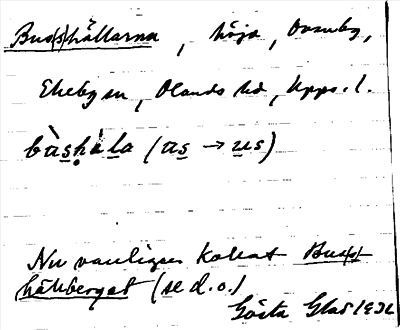 Bus(s)hällarna, höjd, Ovanby,
Ekeby sn, Olands hd, Upps. l.
bàshä̀la (as → us)
Nu vanligen kallat Buss-
hällberget (se d.o.)
Gösta